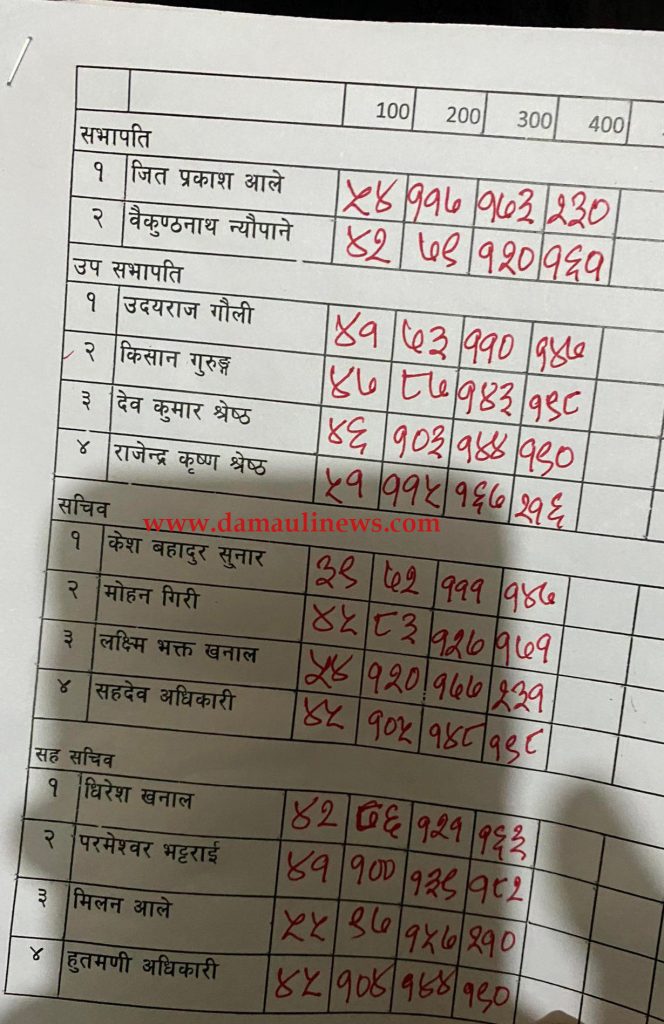 100 200 300 400
सभापति
१ जित प्रकाश आले ५४ ११७ १७३ २३०
२ वैकुण्ठनाथ न्यौपाने ४२ ७९ १२० १६१
उप सभापति
१ उदयराज गौली ४१ ७३ ११० १४७
२ किसान गुरुङ्ग ४७ ८७ १४३ १९८
३ देव कुमार श्रेष्ठ ४६ १०३ १४४ १९०
४ राजेन्द्र कृष्ण श्रेष्ठ ५१ ११५ १६७ २१६
सचिव
www.damaulinews.com
१ केश बहादुर सुनार ३९ ७२ १११ १४७
२ मोहन गिरी ४५ ८३ १२७ १७१
३ लक्ष्मि भक्त खनाल ५४ १२० १७७ २३१
४ सहदेव अधिकारी ४५ १०५ १४८ १९८
सह सचिव
१ धिरेश खनाल ४२ ७६ १२१ १६३
२ परमेश्वर भट्टराई ४१ १०० १३९ १८२
३ मिलन आले ५५ ९७ १५७ २१०
४ हुतमणी अधिकारी ४५ १०४ १४४ १९०